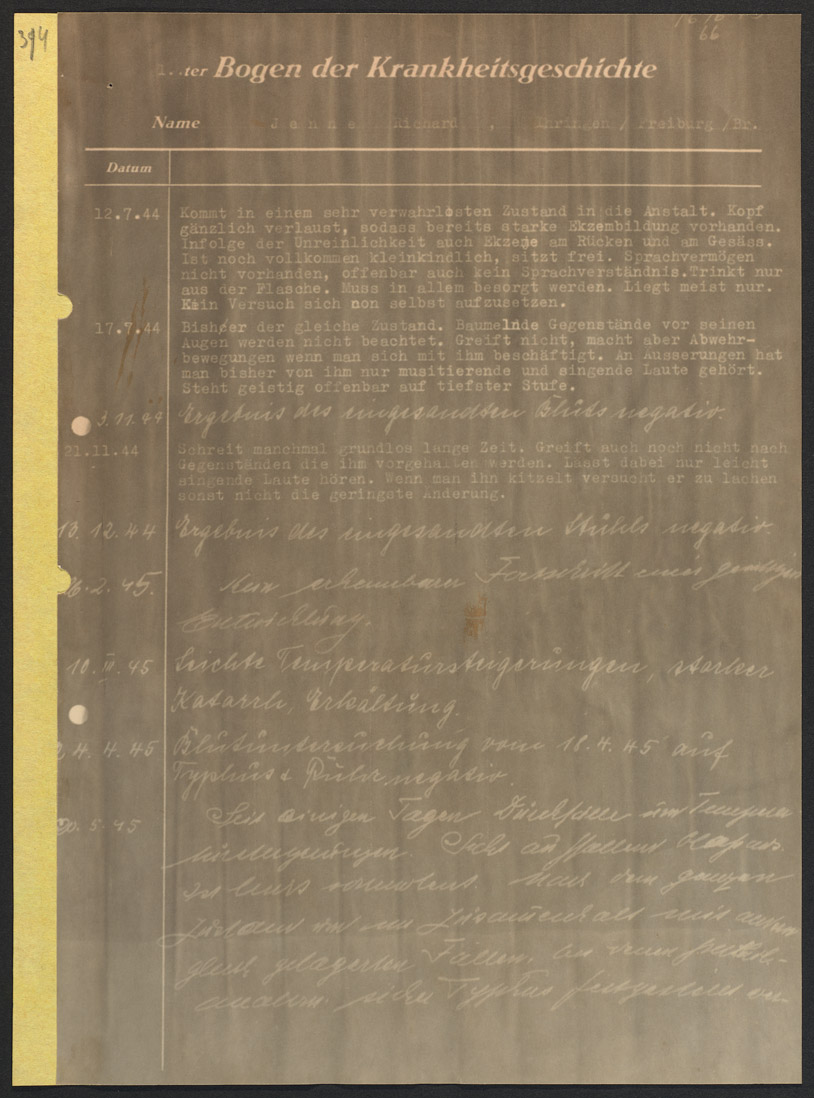 394
66
ter Bogen der Krankheitsgeschichte
Name J e n n e Richard , Ihringen / Freiburg /Br.
Datum
12.7.44 Kommt in einem sehr verwahrlosten Zustand in die Anstalt. Kopf
gänzlich verlaust, sodass bereits starke Ekzembildung vorhanden.
Infolge der Unreinlichkeit auch Ekzeme am Rücken und am Gesäss.
Ist noch vollkommen kleinkindlich, sitzt frei. Sprachvermögen
nicht vorhanden, offenbar auch kein Sprachverständnis.Trinkt nur
aus der Flasche. Muss in allem besorgt werden. Liegt meist nur.
Kein Versuch sich von selbst aufzusetzen.
17.7.44 Bisher der gleiche Zustand. Baumelnde Gegenstände vor seinen
Augen werden nicht beachtet. Greift nicht, macht aber Abwehr-
bewegungen wenn man sich mit ihm beschäftigt. An Äusserungen hat
man bisher von ihm nur musitierende und singende Laute gehört.
Steht geistig offenbar auf tiefster Stufe.
3.11.44 Ergebnis des eingesandten Bluts negativ.
21.11.44 Schreit manchmal grundlos lange Zeit. Greift auch noch nicht nach
Gegenständen die ihm vorgehalten werden. Lässt dabei nur leicht
singende Laute hören. Wenn man ihn kitzelt versucht er zu lachen
sonst nicht die geringste Änderung.
13.12.44 Ergebnis des eingesandten Stuhls negativ.
26.2.45. erkennbarer Fortschritt
Entwicklung.
10.III.45 Leichte Temperatursteigerungen, starker
Katarrh, Erkältung.
24.4.45 Blutuntersuchung vom 18.4.45 auf
Typhus & Ruhr negativ.
20.5.45 Seit einigen Tagen Durchfälle und Tempera-
tursteigerungen. Sieht
Nach dem ganzen
Zustand und im Zusammenhalt mit anderen
gleich gelagerten Fällen, bei denen
Typhus festgestellt